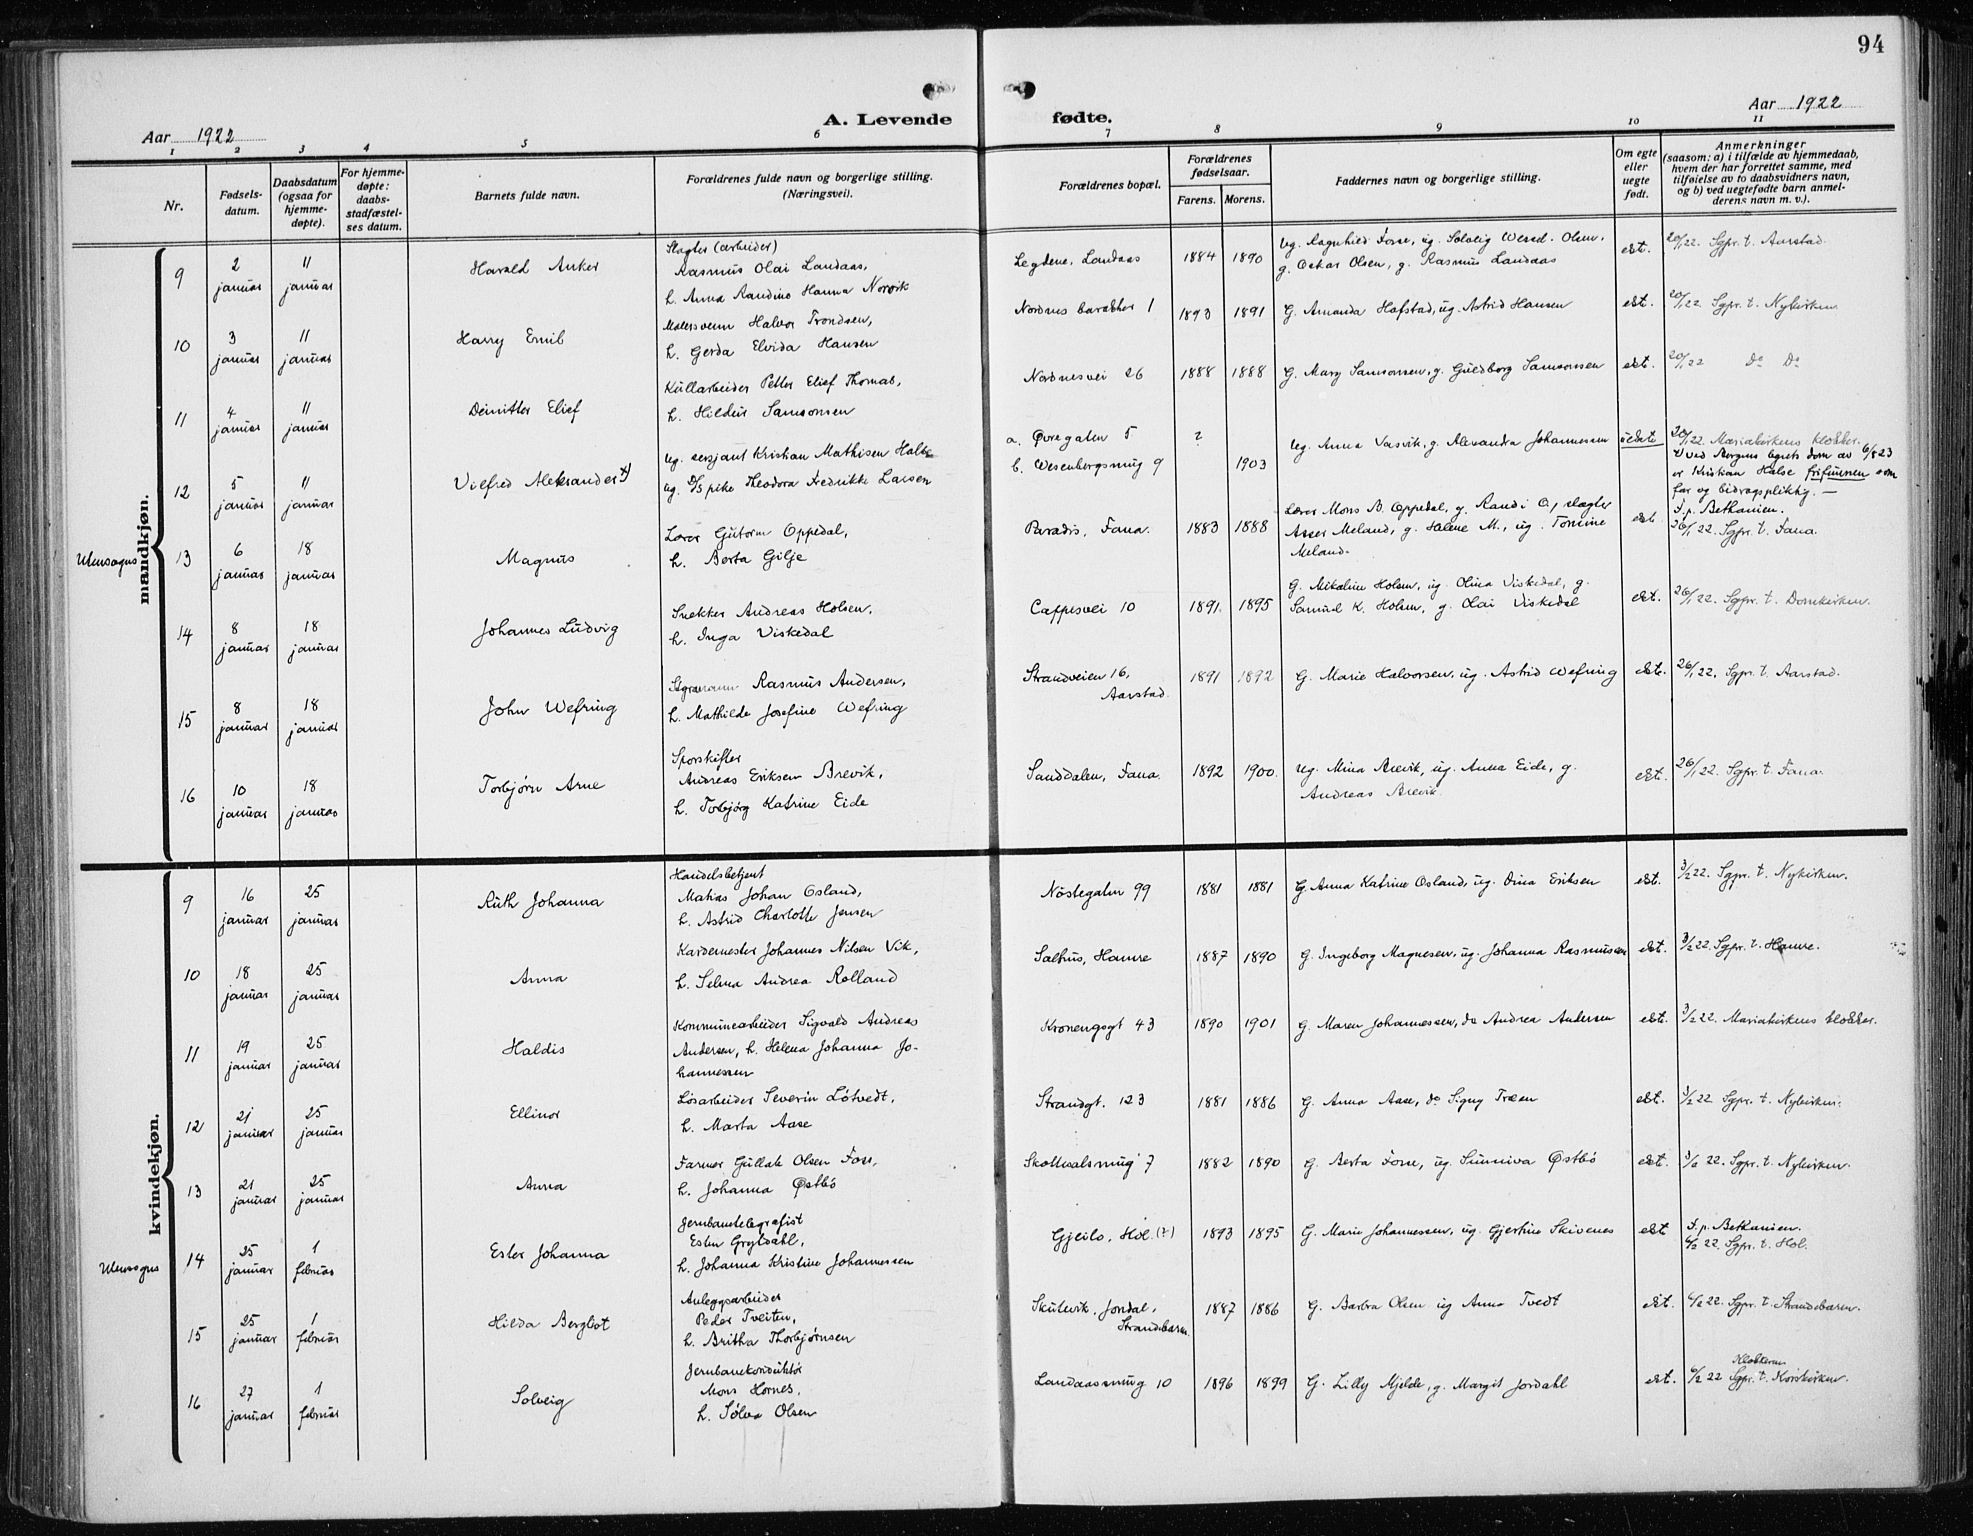 94
Aar 1922
A. Levende
fødte.
Aar 1922
1 2 3 4 5 6 7 8 9 10 11
Nr.
Fødsels-
datum.
Daabsdatum
(ogsaa for
hjemme-
døpte).
For hjemme-
døpte:
daabs-
stadfæstel-
ses datum.
Barnets fulde navn.
Forældrenes fulde navn og borgerlige stilling.
(Næringsvei).
Forældrenes bopæl.
Forældrenes
fødselsaar.
Farens. Morens.
Faddernes navn og borgerlige stilling.
Om egte
eller
uegte
født.
Anmerkninger
(saasom: a) i tilfælde av hjemmedaab,
hvem der har forrettet samme, med
tilføielse av to daabsvidners navn,
og b) ved uegtefødte barn anmel-
derens navn m. v.).
mandkjøn.
Utensogns
9
2
januar
11
januar
Harald Anker
Slagter (arbeider)
Rasmus Olai Landaas,
h. Anna Randine Hanna Norvik
Legdene, Landaas
1884 1890
ug. Ragnhild Fosse, ug. Solveig Wesed. Olsen,
g. Oskar Olsen, g. Rasmus Landaas
ekt.
20/1 22. Sgpr. t. Aarstad.
10
3
januar
11
januar
Harry Emil
Malersvenn Halvor Trondsen,
h. Gerda Elvida Hansen
Nordnes barakker 1
1893 1891
G. Amanda Hofstad, ug. Astrid Hansen
ekt.
20/1 22. Sgpr. t. Nykirken
11
4
januar
11
januar
Elief
Kullarbeider Petter Elief Thomas,
h. Hildur Samsonsen
Nordnesvei 26
1888 1888
G. Mary Samsonsen, g. Guldborg Samsonsen
ekt.
20/1 22 Do Do
12
5
januar
11
januar
Vilfred Aleksander †)
Ug. sersjant Kristian Mathisen Halse
ug. D/S pike Theodora Fredrikke Larsen
a. Øvregaten 5
b. Wesenbergsmug 9
?
1903
Ug. Anna Vasvik, g. Alexandra Johannessen
uekte
20/1 22. Mariakirkens klokker.
†) ved Bergens byrets dom av 6/8 23
er Kristian Halse frifunnen som
far og bidragspliktig. —
13
6
januar
18
januar
Magnus
Lærer Gutorm Oppedal,
h. Berta Gilje
Paradis, Fana.
1883 1888
Lærer Mons B. Oppedal, g. Randi O., slagter
Asser Meland, g. Helene M., ug. Tomine
Meland.
ekt
F. p. Bethanien.
26/1 22. Sgpr. t. Fana.
14
8
januar
18
januar
Johannes Ludvig
Snekker Andreas Holsen,
h. Inga Viskedal
Cappesvei 10
1891. 1895
G. Mikaline Holsen, ug. Olina Viskedal, g.
Samuel K. Holsen, g. Olai Viskedal
ekt.
26/1 22. Sgpr. t. Domkirken.
15
8
januar
18
januar
John Wefring
Rasmus Andersen,
h. Mathilde Josefine Wefring
Strandveien 16,
Aarstad.
1891 1892
G. Marie Halvorsen, ug. Astrid Wefring
ekt.
26/1 22. Sgpr. t. Aarstad.
16
10
januar
18
januar
Torbjørn Arne
Sporskifter
Andreas Eriksen Brevik,
h. Torbjørg Katrine Eide
Sanddalen, Fana.
1892 1900.
Ug. Mina Brevik, ug. Anna Eide, g.
Andreas Brevik.
ekt.
26/1 22. Sgpr. t. Fana.
kvindekjøn.
Utensogns
9
16
januar
25
januar
Ruth Johanna
Handelsbetjent
Matias Johan Osland,
h. Astrid Charlotte Jensen
Nöstegaten 99
1881 1881
G. Anna Katrine Osland, ug. Dina Eriksen
ekt.
3/2 22. Sgpr. t. Nykirken.
10
18
januar
25
januar
Anna
Kardemester Johannes Nilsen Vik,
h. Selma Andrea Rolland
Salhus, Hamre
1887 1890
G. Ingeborg Magnesen, ug. Johanna Rasmussen
ekt.
3/2 22. Sgpr. t. Hamre.
11
19
januar
25
januar
Haldis
Kommunearbeider Sigvald Andreas
Andersen, h. Helena Johanna Jo-
hannessen
Kronengsgt 43
1890 1901
G. Maren Johannessen, do Andrea Andersen
ekt.
3/2 22. Mariakirkens klokker.
12
21
januar
25
januar
Ellinor
Løsarbeider Severin Lötvedt,
h. Marta Aase
Strandgt. 123
1881 1886
G. Anna Aase, do Signy Træen
ekt.
3/2 22 Sgpr. t. Nykirken.
13
21
januar
25
januar
Anna
Farmer Gullak Olsen Foss,
h. Johanna Østbö
Skottualsmug 7
1882 1890
G. Berta Fosse, ug. Sunniva Østbö
ekt.
3/2 22. Sgpr. t. Nykirken.
14
25
januar
1
februar
Ester Johanna
Jernbanetelegrafist
Esten Grytdahl,
h. Johanna Kristine Johannessen
Gjeilo, Hol. (?)
1893 1895
G. Marie Johannessen, ug. Gjertine Skivenes
ekt
F. p. Bethanien.
6/2 22. Sgpr. t. Hol.
15
25
januar
1
februar
Hilda Bergljot
Anleggsarbeider
Peder Tveiten,
h. Britha Thorbjørnsen
Skutevik, Jondal,
Strandebarm.
1887 1886
G. Barbra Olsen ug Anna Tvedt
ekt.
6/2 22. Sgpr. t. Strandebarm.
16
27
januar
1
februar
Solveig
Jernbanekonduktör
Mons Hornes,
h. Sölva Olsen
Landaasmug 10
1896 1899
G. Lilly Mjelde, g. Margit Jordahl
ekt.
Klokkeren
6/2 22 Sgpr. t. Korskirken.